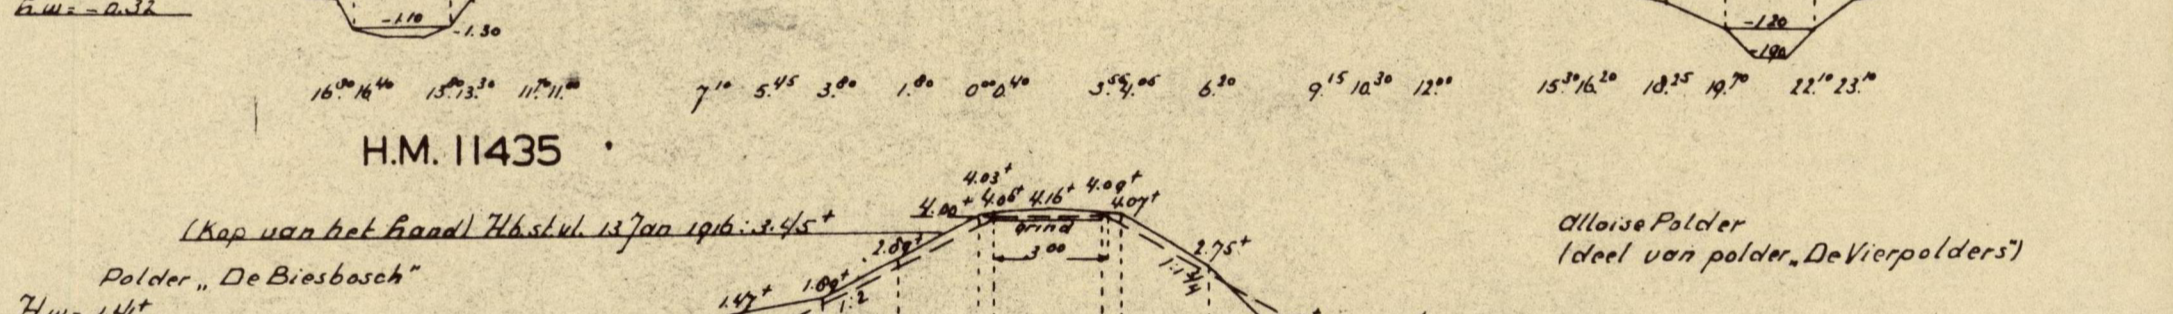 h.w = - 0.32
-1.10
-1.30
-1.20
-1.90
16.80 16.40 13.80 13.30 11.70 11.00 7.10 5.45 3.80 1.80 0.00 0.40 3.56 4.06 6.20 9.15 10.30 12.00 15.30 16.20 18.25 19.70 22.10 23.10
H.M. 11435
4.03+
4.00+ 4.06+ 4.16+ 4.09+ 4.07+
(Kop van het Land) H.b.st.vl. 13 Jan 1916: 3.45+
grind
3.00
2.89+
2.75+
Alloise Polder
(deel van polder „De Vierpolders")
Polder „De Biesbosch"
1.89+
1.47+
1:2
1:1 3/4